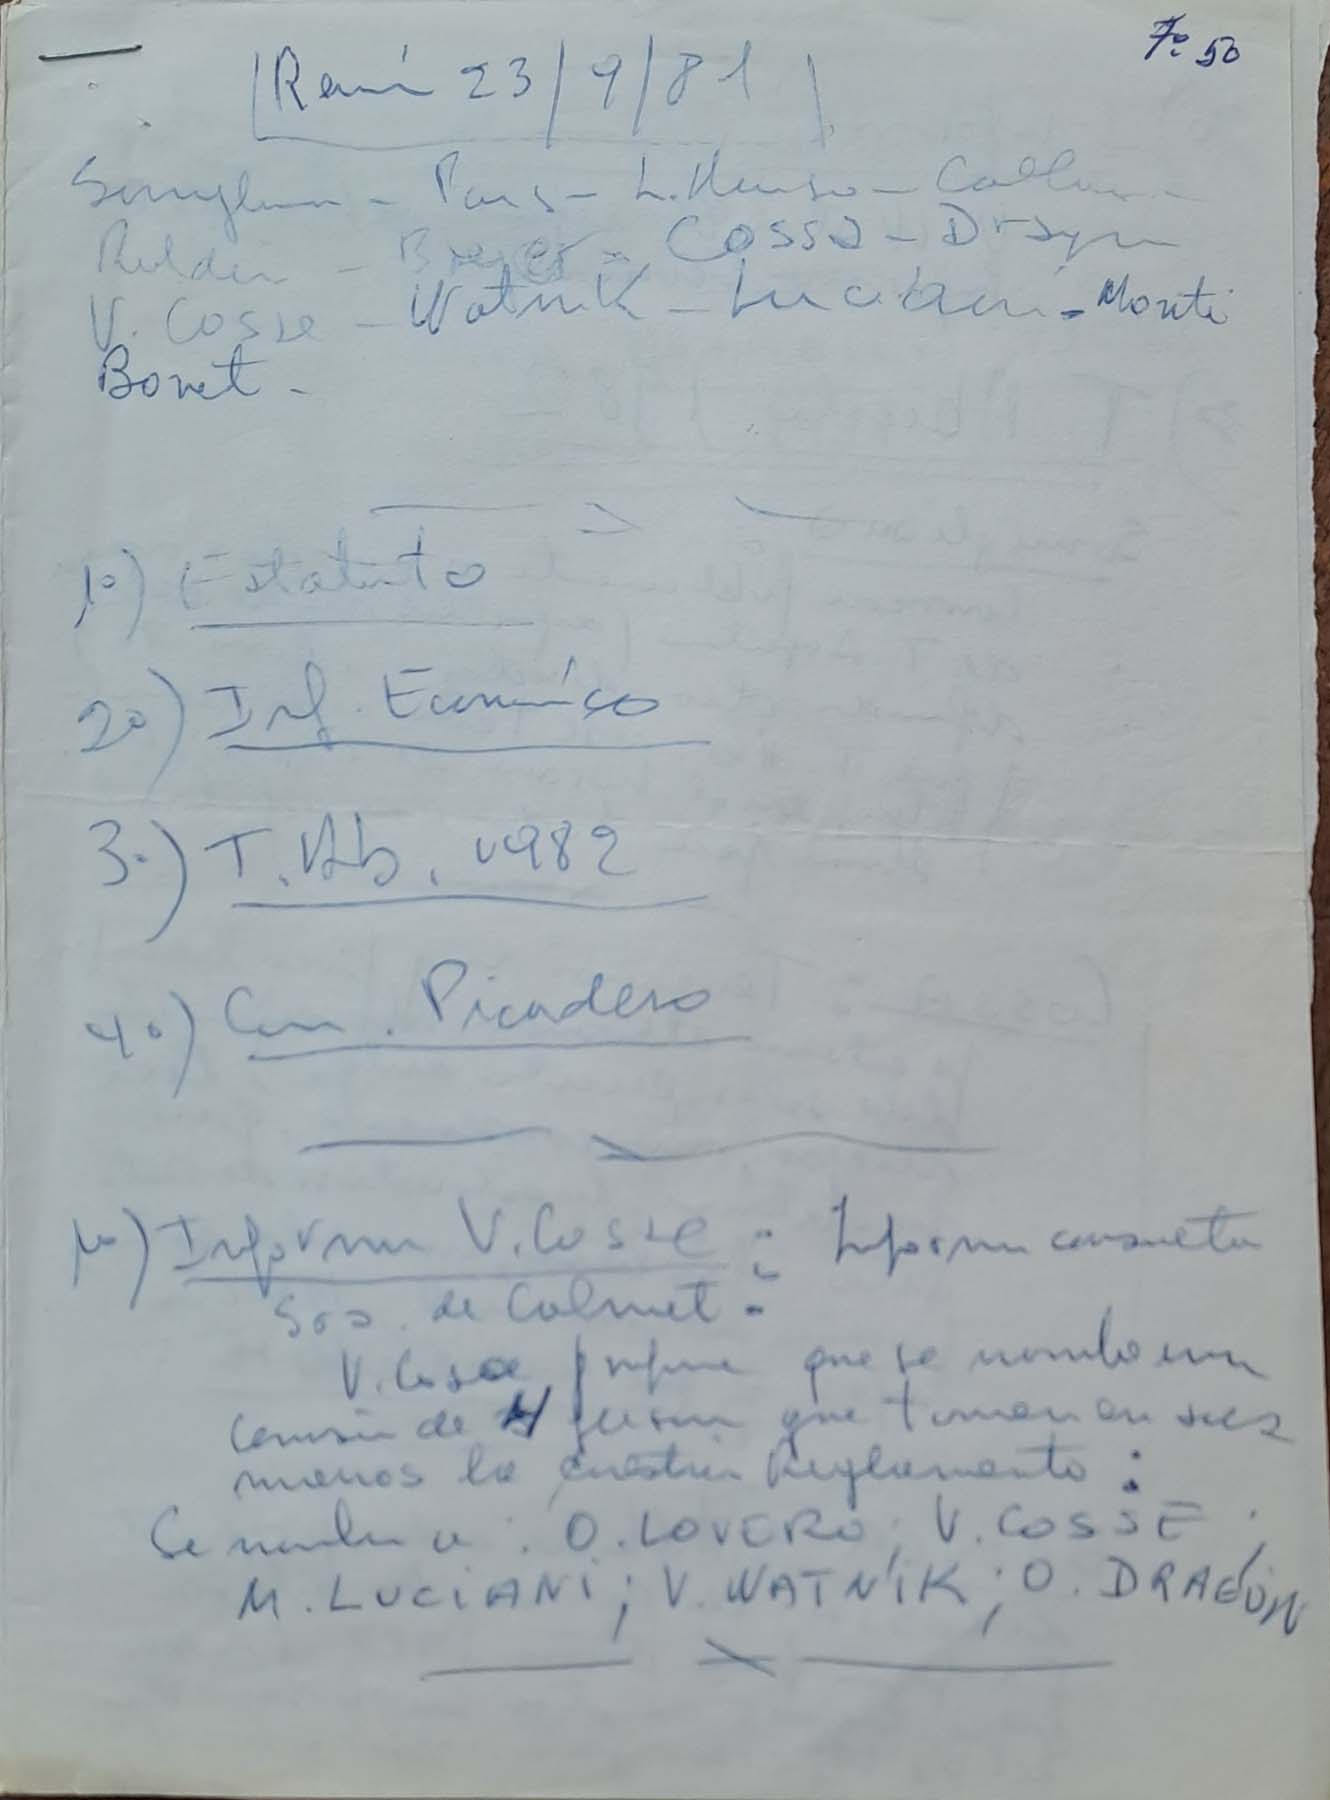 Fo: 50
Reunión 23/9/81
Somigliana - Pais - L. Alonso - Callau -
Roldán - Breyer - Cossa - Dragún
V. Cosse - Watnik - Luciani - Monti
Bonet -
1º) Estatuto
2º) Inf. Económico
3º) T. Ab. 1982
4º) Com. Picadero
1º) Informe V. Cosse : Informe consulta
Srs. de Calmet :
V. Cosse propone que se nombre una
comisión de 4 personas que tomen en sus
manos la cuestión Reglamento :
Se nombra a : O. LOVERO ; V. COSSE ;
M. LUCIANI ; V. WATNIK ; O. DRAGÚN